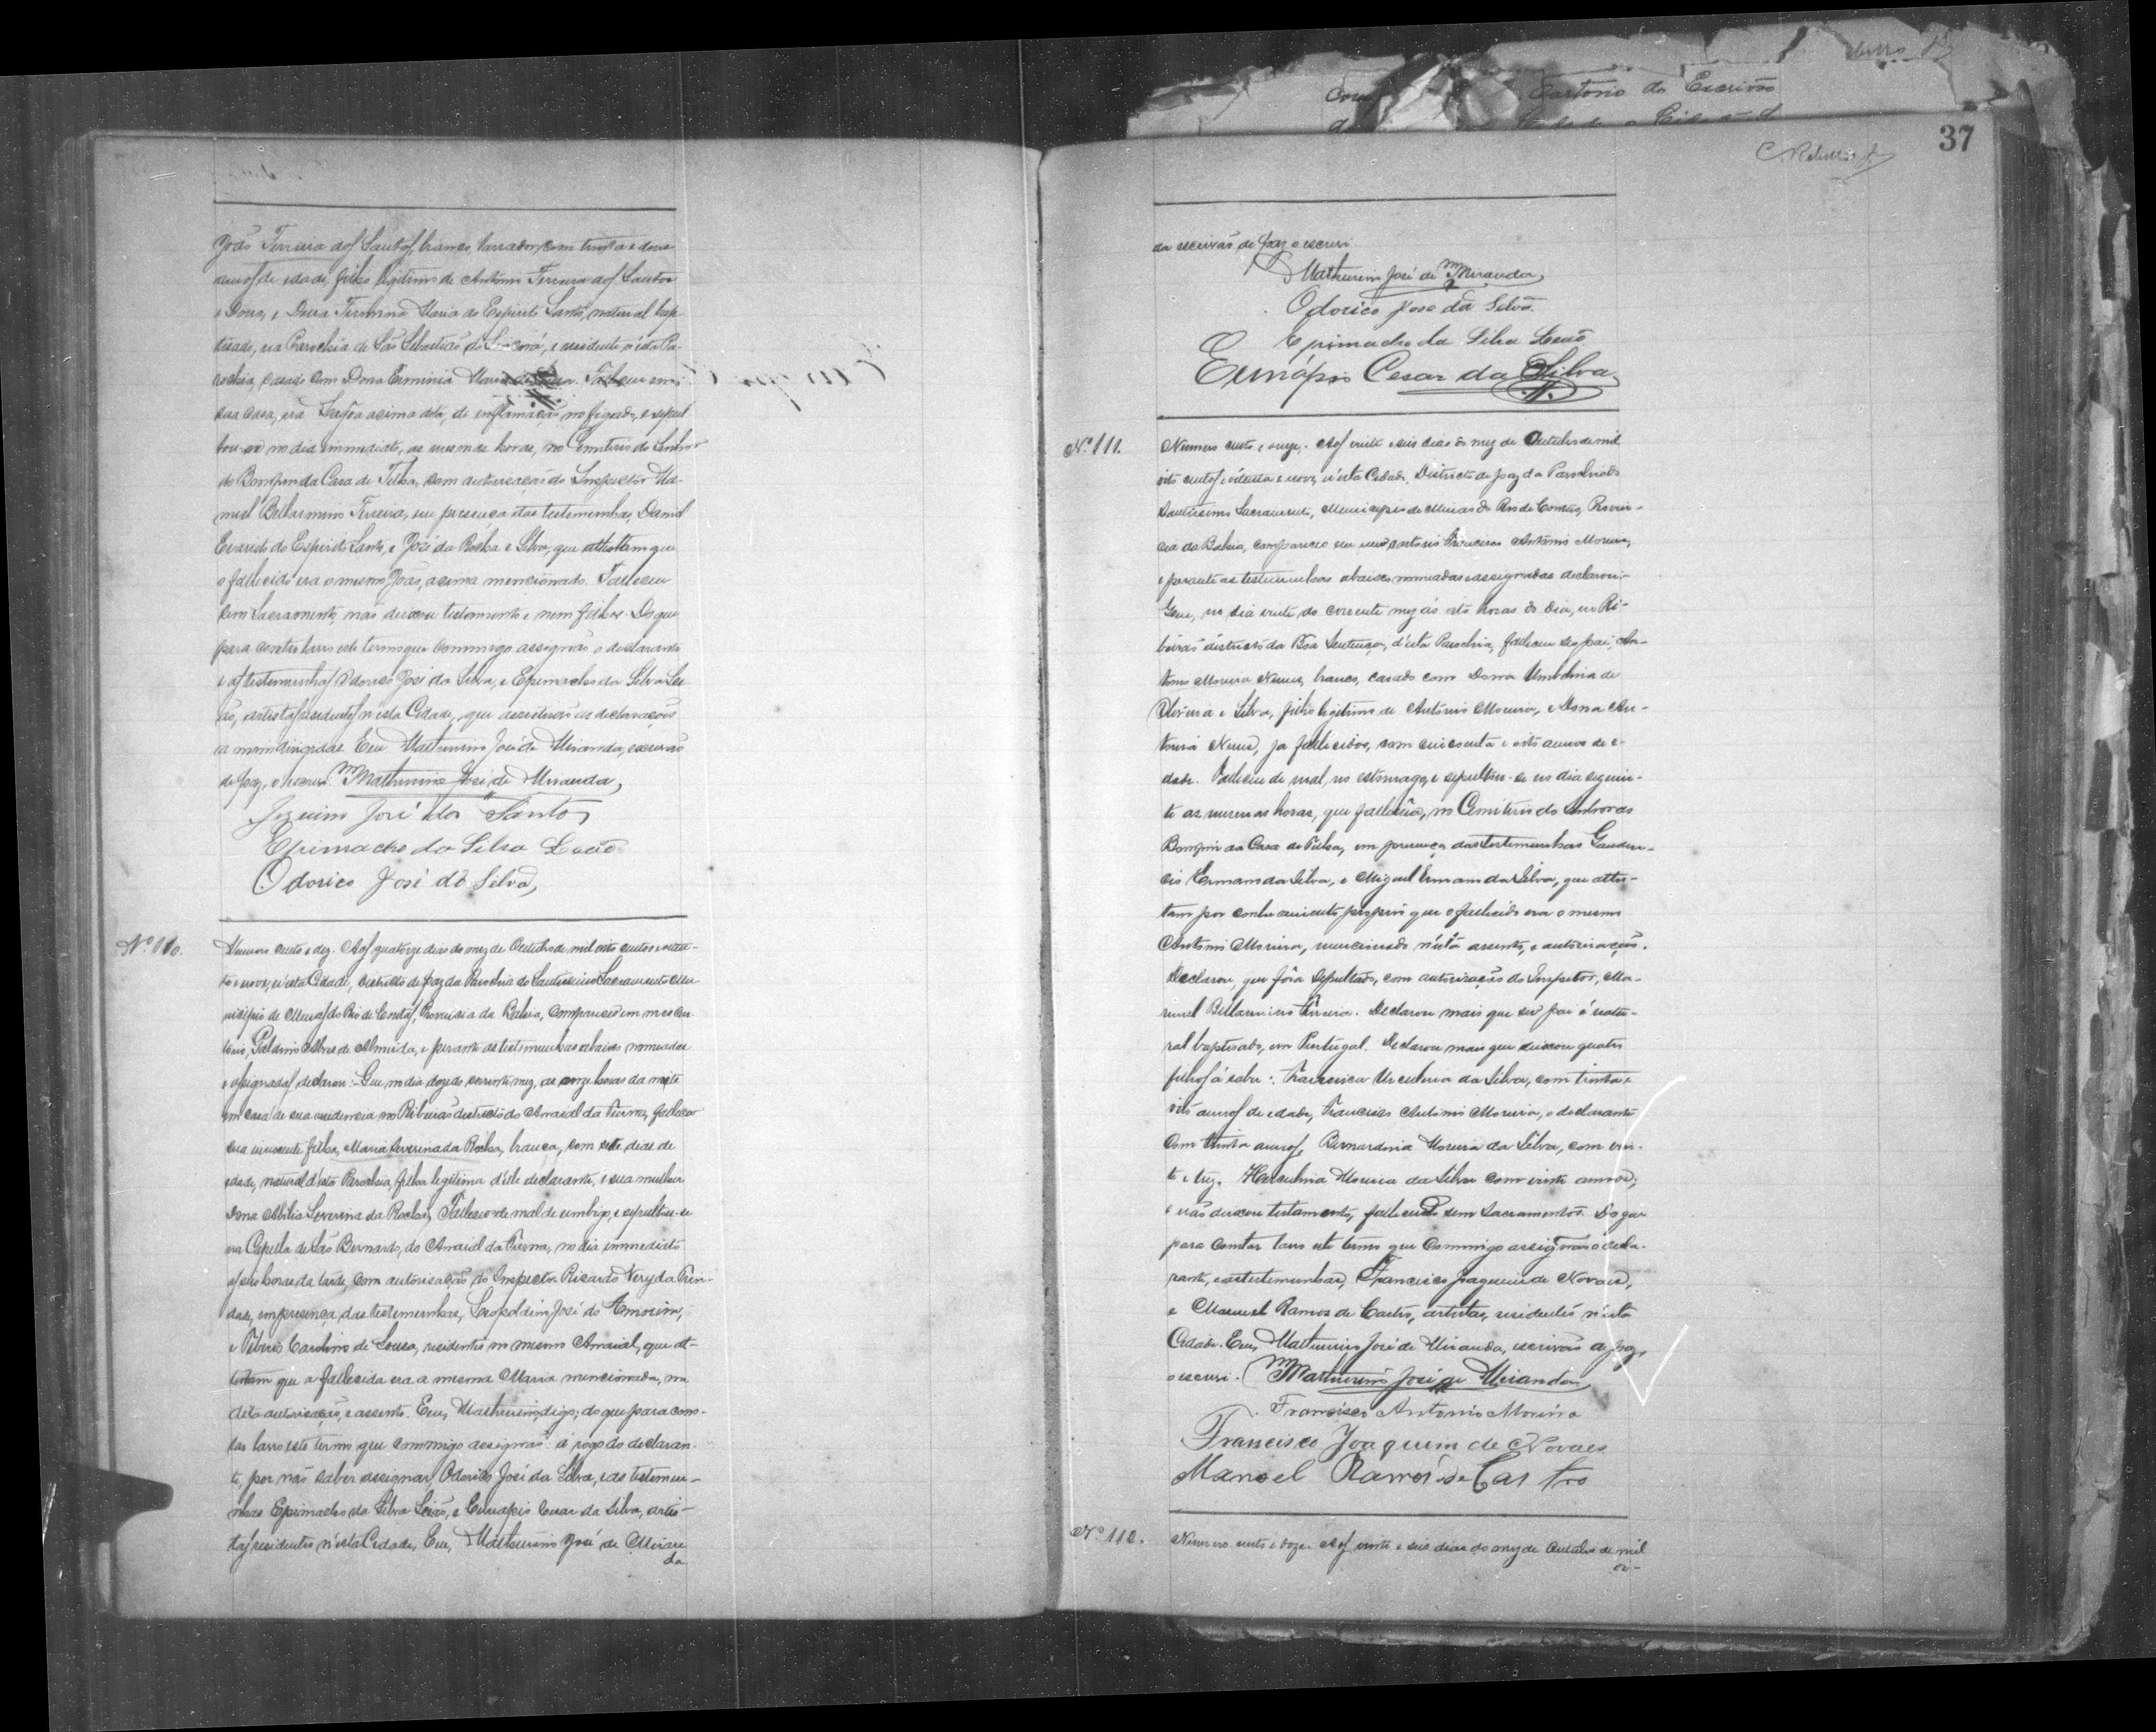 Cartorio do Escrivão
37
João Ferreira dos Santos, branco, lavrador, com trinta e dous
annos de idade, filho legitimo de Antonio Ferreira dos Santos
e Dona, e Dona Firmina Maria do Espirito Santo, natural bap-
tisado, na Parochia de São Sebastião do, e residente n'esta Pa-
rochia, casado com Dona Erminia Maria de. Falleceu em
sua casa, na Lagôa acima dita, de inflamação no figado, e sepul
tou-se no dia immediato, as mesmas horas, no Cemiterio do Senhor
do Bomfim da Casa de Telha, com autorisação do Inspector Ma-
noel Bellarmino Ferreira, em presença das testemunhas, Daniel
Evaristo do Espirito Santo, e José da Rocha e Silva, que attestam que
o fallecido era o mesmo João, acima mencionado. Falleceu
sem Sacramento, não deixou testamento e nem filhos. Do que
para constar lavro este termo que commigo assignão o declarante
e as testemunhas Odorico José da Silva, e Epimacho da Silva Le-
ão, artistas residentes n'esta Cidade, que as declarações
a mim dirigidas. Eu Mathurino José de Miranda, escrivão
de paz, o escrevi. Mathurino José de Miranda,
José dos Santos
Epimacho da Silva Leão
Odorico José da Silva,
Nº 110.
Numero cento e dez. Aos quatorze dias do mez de Outubro de mil oito centos e oiten-
ta e nove, n'esta Cidade, districto de paz da Parochia do Santissimo Sacramento Mu
nicipio de Minas do Rio de Contas, Provincia da Bahia, compareceu em meo Car-
torio, Galdino Alves de Almeida, e perante as testemunhas abaixo nomeadas
e assignadas declarou: Que no dia doze do corrente mez, as onze horas da noite
em casa de sua residencia no Ribeirão districto do Arraial da Furna, falleceo
sua innocente filha, Maria Severina da Rocha, branca, com sete dias de
idade, natural d'esta Parochia, filha legitima d'elle declarante, e sua mulher
Dona Abilia Severina da Rocha, Falleceo de mal de umbigo, e sepultou-se
na Capella de São Bernardo, do Arraial da Furna, no dia immediato
as seis horas da tarde, com autorisação do Inspector Ricardo Nery da Trin-
dade, em presença das testemunhas, Leopoldino José do Amorim,
e Tiberio Carolino de Sousa, residentes no mesmo Arraial, que at-
testam que a fallecida era a mesma Maria mencionada, na
dita autorisação, e assento. Eu, Mathurino, digo; do que para cons-
tar lavro este termo que commigo assignão a rogo do declaran-
te, por não saber assignar, Odorico José da Silva, e as testemu-
nhas Epimacho da Silva Leão, e Eunápio Cesar da Silva, artis-
tas residentes n'esta Cidade, Eu, Mathurino José de Miran
da
da escrivão de paz o escrevi
Mathurino José de Miranda,
Odorico José da Silva.
Epimacho da Silva Leão
Eunápio Cesar da Silva
Nº 111.
Numero cento e onze. Aos vinte e seis dias do mez de Outubro de mil
oito centos e oitenta e nove, n'esta Cidade, Districto de paz da Parochia do
Santissimo Sacramento, Municipio de Minas do Rio de Contas, Provin-
cia da Bahia, compareceo em meo cartorio Francisco Antonio Moreira,
e perante as testemunhas abaixo nomeadas e assignadas declarou:-
Que, no dia vinte do corrente mez ás oito horas do dia, no Ri-
beirão districto da Boa Sentença, d'esta Parochia, falleceu seo pai, An-
tonio Moreira Nunes, branco, casado com Dona Umbelina de
Oliveira e Silva, filho legitimo de Antonio Moreira, e Dona An-
tonia Nunes, ja fallecidos, com cincoenta e oito annos de i-
dade. Falleceu de mal no estomago, e sepultou-se no dia seguin-
te as mesmas horas, que fallecêra, no Cemiterio do Senhor do
Bomfim da Casa de Telha, em presença das testemunhas Gauden-
cio Ermano da Silva, e Miguel Ermano da Silva, que attes-
tam por conhecimento proprio que o fallecido era o mesmo
Antonio Moreira, mencionado n'este assento, e autorisação.
Declarou, que fôra sepultado, com autorisação do Inspector, Ma-
nuel Bellarmino Ferreira. Declarou mais que seo pai é natu-
ral baptisado, em Portugal. Declarou mais que deixou quatro
filhos á saber: Francisca Urculina da Silva, com trinta e
oito annos de idade, Francisco Antonio Moreira, o declarante
com trinta annos, Bernardina Moreira da Silva, com vin-
te e trez, Herculina Moreira da Silva com vinte annos;
e não deixou testamento, falleceu sem Sacramentos. Do que
para constar lavro este termo que commigo assignão o decla-
rante, e as testemunhas, Francisco Joaquim de Novaes,
e Manuel Ramos de Castro, artistas, residentes n'esta
Cidade. Eu, Mathurino José de Miranda, escrivão de paz,
o escrevi. Mathurino José de Miranda
Francisco Antonio Moreira
Francisco Joaquim de Novaes
Manoel Ramos de Castro
Nº 112.
Numero cento e doze. Aos vinte e seis dias do mez de Outubro de mil
oi-